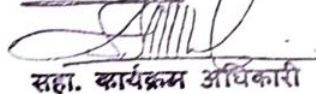 सहा. कार्यक्रम अधिकारी